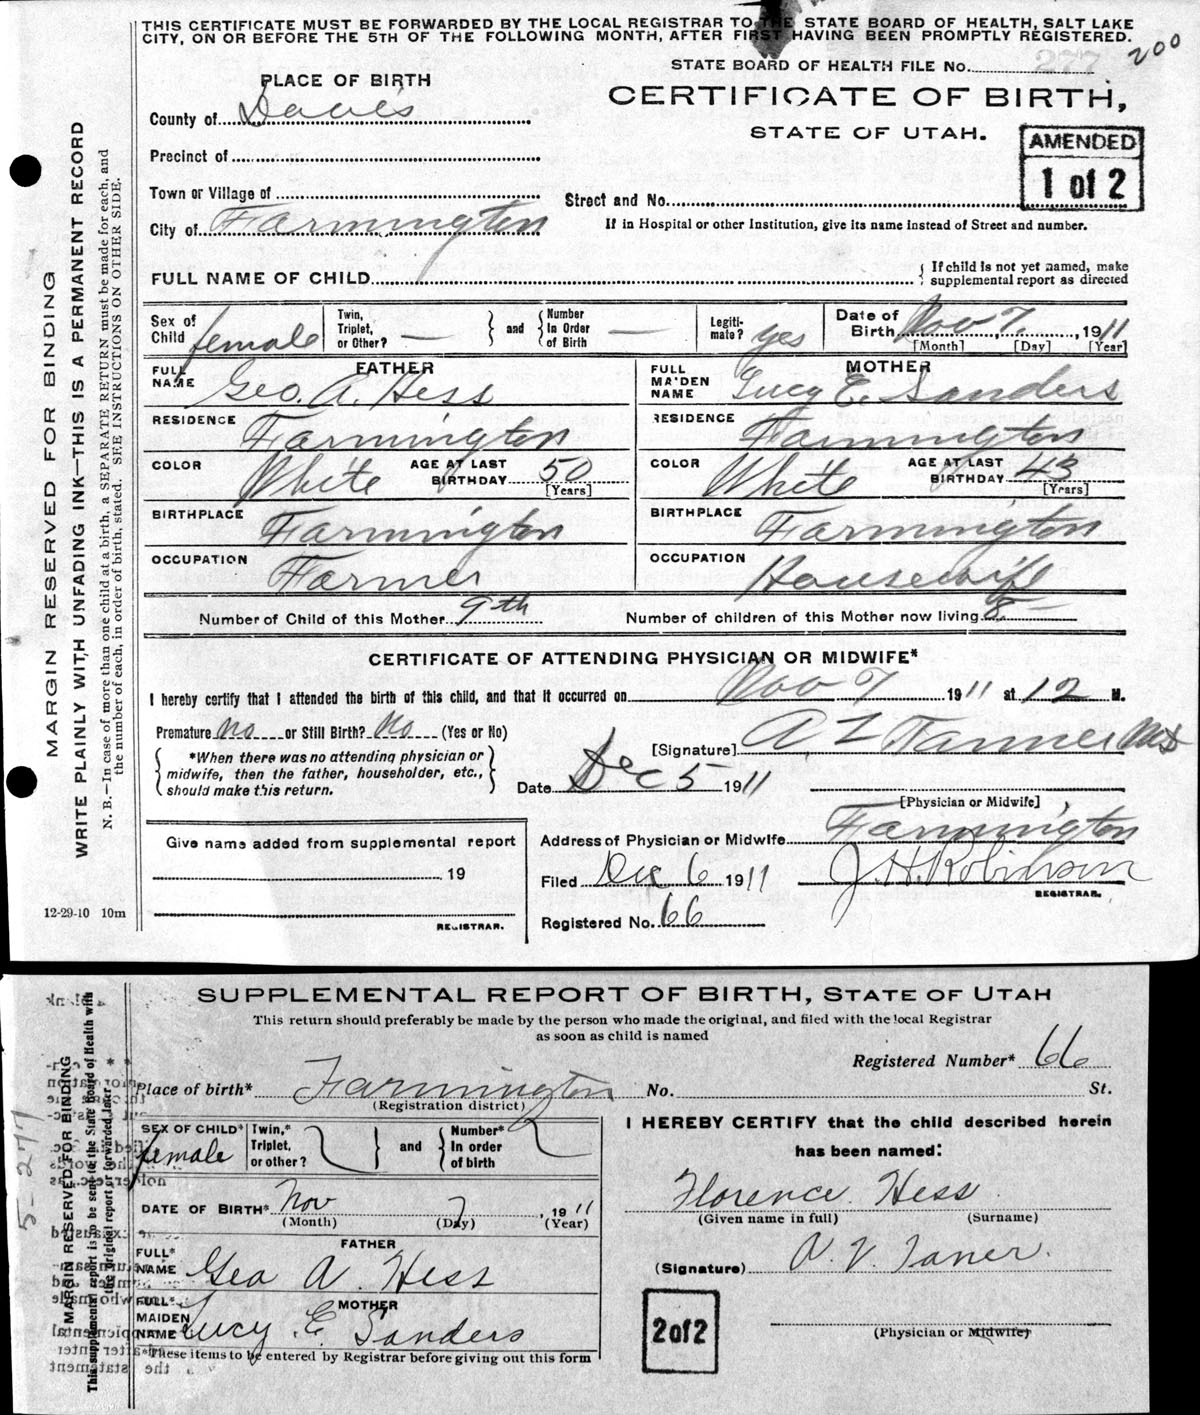 THIS CERTIFICATE MUST BE FORWARDED BY THE LOCAL REGISTRAR TO THE STATE BOARD OF HEALTH, SALT LAKE
CITY, ON OR BEFORE THE 5TH OF THE FOLLOWING MONTH, AFTER FIRST HAVING BEEN PROMPTLY REGISTERED.
200
PLACE OF BIRTH
STATE BOARD OF HEALTH FILE No. 277
County of Davis
CERTIFICATE OF BIRTH,
STATE OF UTAH.
AMENDED
1 of 2
Precinct of
Town or Village of
Street and No.
City of Farmington
If in Hospital or other Institution, give its name instead of Street and number.
FULL NAME OF CHILD
If child is not yet named, make
supplemental report as directed
Sex of Child female
Twin, Triplet, or Other? —
and
Number In Order of Birth —
Legiti-mate? yes
Date of Birth Nov 7, 1911
[Month] [Day] [Year]
FATHER
FULL NAME Geo. A. Hess
MOTHER
FULL MAIDEN NAME Lucy E. Sanders
RESIDENCE Farmington
RESIDENCE Farmington
COLOR White AGE AT LAST BIRTHDAY 50 [Years]
COLOR White AGE AT LAST BIRTHDAY 43 [Years]
BIRTHPLACE Farmington
BIRTHPLACE Farmington
OCCUPATION Farmer
OCCUPATION Housewife
Number of Child of this Mother 9th
Number of children of this Mother now living 8
CERTIFICATE OF ATTENDING PHYSICIAN OR MIDWIFE*
I hereby certify that I attended the birth of this child, and that it occurred on Nov 7 1911 at 12 M.
Premature no or Still Birth? No (Yes or No)
*When there was no attending physician or
midwife, then the father, householder, etc.,
should make this return.
[Signature] A Z Tanner MD
Date Dec 5 1911
[Physician or Midwife]
Address of Physician or Midwife Farmington
Give name added from supplemental report
19
REGISTRAR.
Filed Dec 6 1911 J. H. Robinson
REGISTRAR.
Registered No. 66
12-29-10 10m
MARGIN RESERVED FOR BINDING
WRITE PLAINLY WITH UNFADING INK—THIS IS A PERMANENT RECORD
N. B.—In case of more than one child at a birth, a SEPARATE RETURN must be made for each, and
the number of each, in order of birth, stated. SEE INSTRUCTIONS ON OTHER SIDE.
SUPPLEMENTAL REPORT OF BIRTH, STATE OF UTAH
This return should preferably be made by the person who made the original, and filed with the local Registrar
as soon as child is named
Registered Number* 66
Place of birth* Farmington No. St.
(Registration district)
SEX OF CHILD* female
Twin,* Triplet, or other?
and
Number* In order of birth
I HEREBY CERTIFY that the child described herein
has been named:
DATE OF BIRTH* Nov 7, 1911
(Month) (Day) (Year)
Florence Hess
(Given name in full) (Surname)
FATHER
FULL* NAME Geo A. Hess
(Signature) A. V. Taner.
MOTHER
FULL* MAIDEN NAME Lucy E. Sanders
2 of 2
(Physician or Midwife)
*These items to be entered by Registrar before giving out this form
MARGIN RESERVED FOR BINDING
This supplemental report is to be sent to the State Board of Health with
the original report or forwarded later
5-277